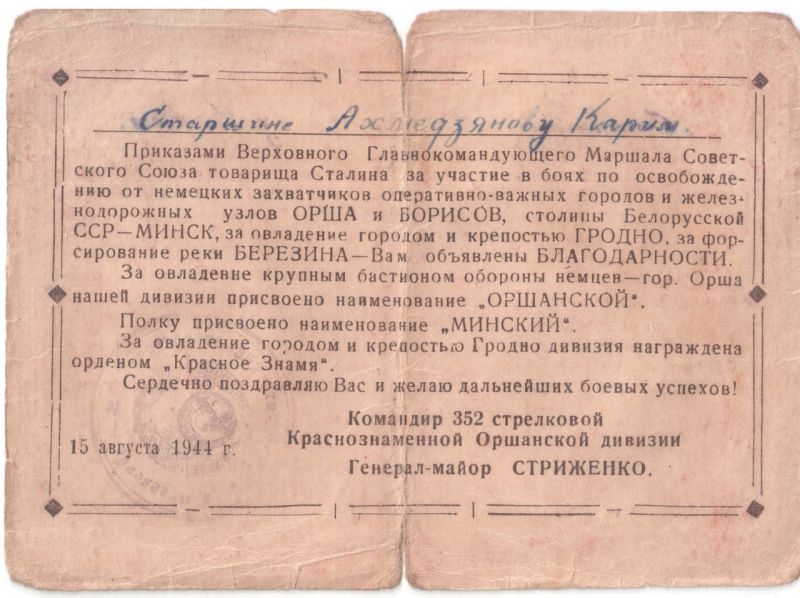 Старшине Ахмедзянову Карим.
Приказами Верховного Главнокомандующего Маршала Совет-
ского Союза товарища Сталина за участие в боях по освобожде-
нию от немецких захватчиков оперативно-важных городов и желез-
нодорожных узлов ОРША и БОРИСОВ, столицы Белорусской
ССР—МИНСК, за овладение городом и крепостью ГРОДНО, за фор-
сирование реки БЕРЕЗИНА—Вам объявлены БЛАГОДАРНОСТИ.
За овладение крупным бастионом обороны немцев—гор. Орша
нашей дивизии присвоено наименование „ОРШАНСКОЙ“.
Полку присвоено наименование „МИНСКИЙ“.
За овладение городом и крепостью Гродно дивизия награждена
орденом „Красное Знамя“.
Сердечно поздравляю Вас и желаю дальнейших боевых успехов!
Командир 352 стрелковой
Краснознаменной Оршанской дивизии
Генерал-майор СТРИЖЕНКО.
15 августа 1944 г.